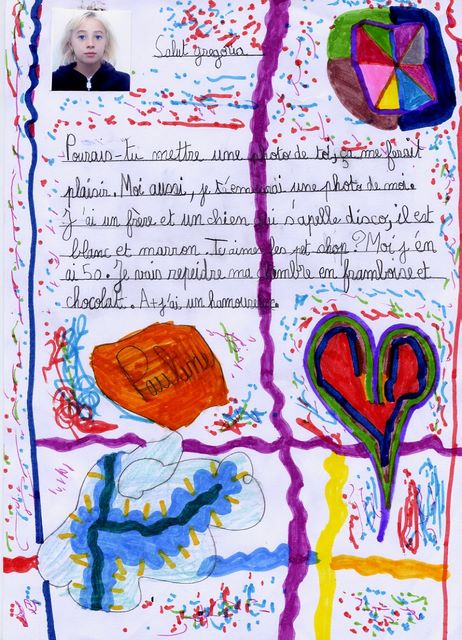 Salut gregoria
Pourais-tu mettre une photo de toi, ça me ferait
plaisir. Moi aussi, je t'émenrai une photo de moi.
J'ai un frère et un chien qui s'apelle disco, il est
blanc et marron. Tu aime les pet shop? Moi j'én
ai 50. Je vais repeidre ma chambre en framboise et
chocolat. A+ j'ai un hamoureux.
Pauline